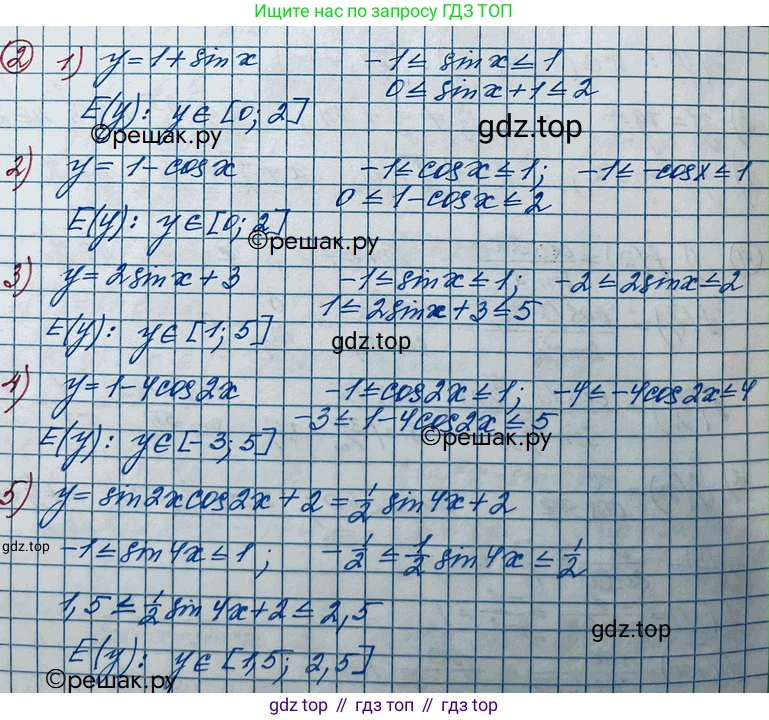 Ищите нас по запросу ГДЗ ТОП
② 1) y=1+sinx -1≤ sinx≤1
0≤sinx+1≤2
E(y): y∈[0; 2]
©решак.ру gdz.top
2) y=1-cosx -1≤cosx≤1; -1≤-cosx≤1
0≤1-cosx≤2
E(y): y∈[0; 2]
©решак.ру
3) y=2sinx+3 -1≤sinx≤1; -2≤2sinx≤2
1≤2sinx+3≤5
E(y): y∈[1; 5]
gdz.top
4) y=1-4cos2x -1≤cos2x≤1; -4≤-4cos2x≤4
-3≤1-4cos2x≤5
E(y): y∈[-3; 5]
©решак.ру
5) y=sin2xcos2x+2=1/2 sin4x+2
gdz.top
-1≤sin4x≤1; -1/2≤1/2 sin4x≤1/2
1,5≤1/2 sin4x+2≤2,5
gdz.top
E(y): y∈[1,5; 2,5]
©решак.ру
gdz top // гдз топ // гдз top